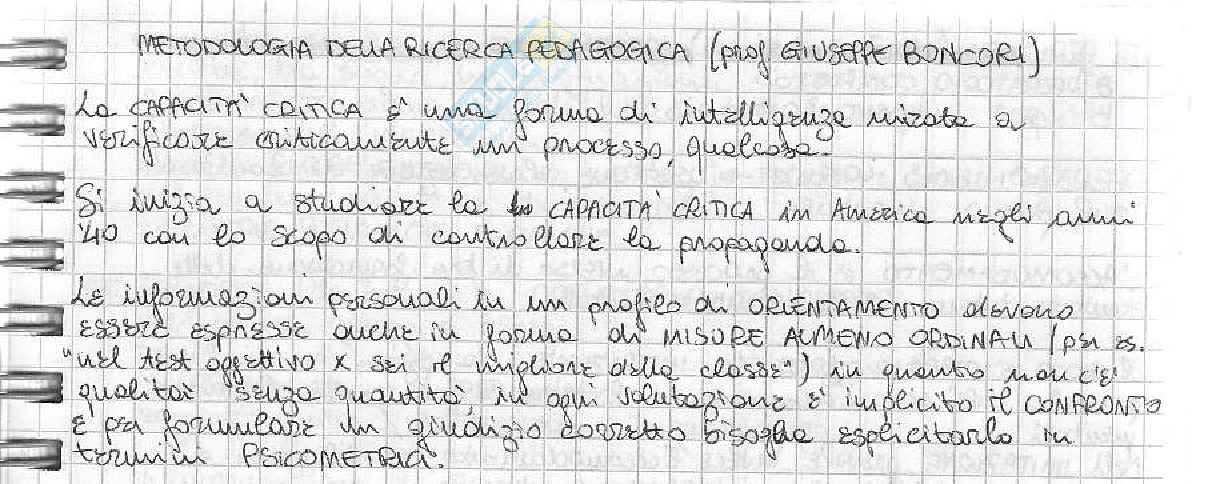 METODOLOGIA DELLA RICERCA PEDAGOGICA (prof GIUSEPPE BONCORI)
La CAPACITA' CRITICA è una forma di intelligenza mirata a
verificare criticamente un processo, qualcosa.
Si inizia a studiare la CAPACITA' CRITICA in America negli anni
'40 con lo scopo di controllare la propaganda.
Le informazioni personali in un profilo di ORIENTAMENTO devono
essere espresse anche in forma di MISURE ALMENO ORDINALI (per es.
"nel test oggettivo x sei il migliore della classe") in quanto non c'è
qualità senza quantità, in ogni valutazione è implicito il CONFRONTO
e per formulare un giudizio corretto bisogna esplicitarlo in
termini PSICOMETRICI.